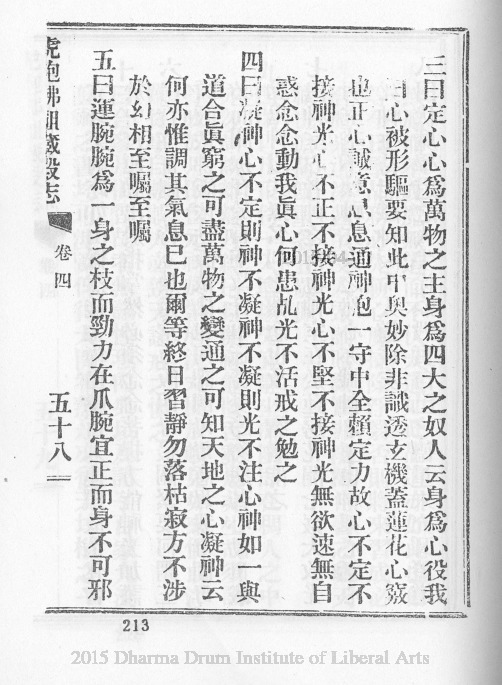 三曰定心心爲萬物之主身爲四大之奴人云身爲心役我
曰心被形驅要知此中奧妙除非識透玄機蓋蓮花心竅
也正心誠意息息通神抱一守中全賴定力故心不定不
接神光心不正不接神光心不堅不接神光無欲速無自
惑念念動我眞心何患乩光不活戒之勉之
四曰凝神心不定則神不凝神不凝則光不注心神如一與
道合眞窮之可盡萬物之變通之可知天地之心凝神云
何亦惟調其氣息已也爾等終日習靜勿落枯寂方不涉
於幻相至囑至囑
五曰運腕腕爲一身之枝而勁力在爪腕宜正而身不可邪
虎跑佛祖藏殿志
卷四
五十八
213
2015 Dharma Drum Institute of Liberal Arts